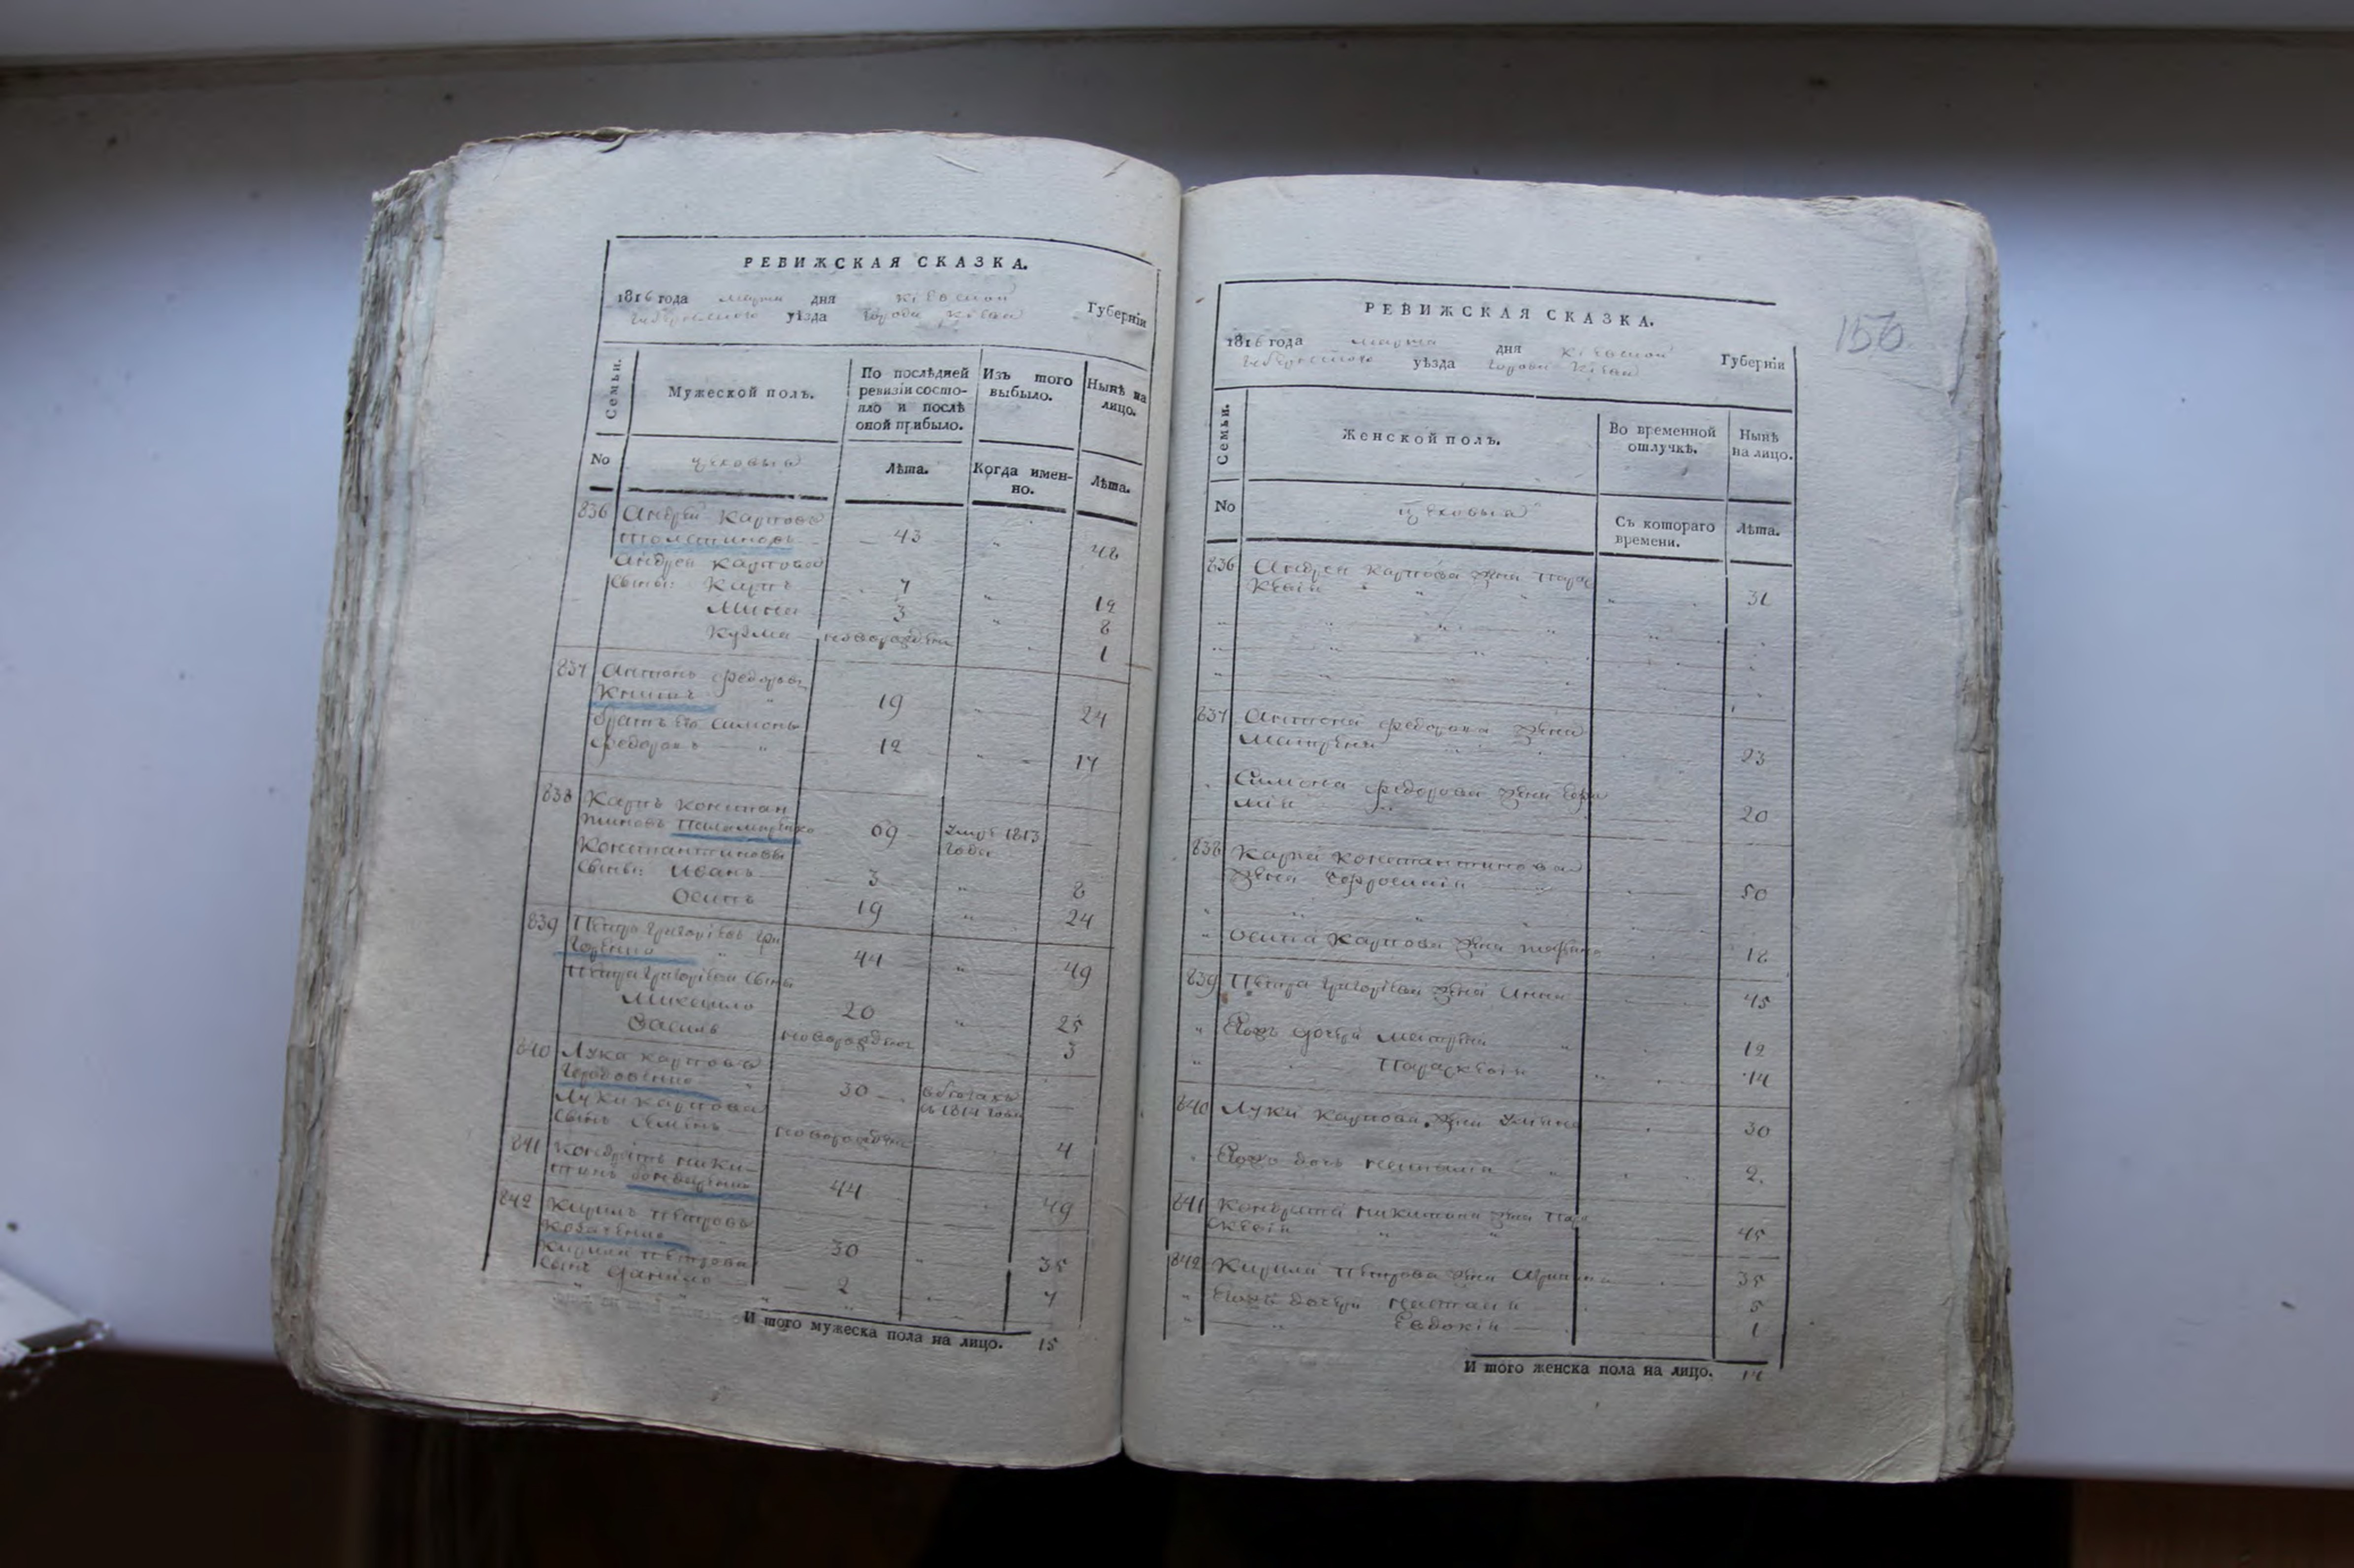 РЕВИЖСКАЯ СКАЗКА.
1816 года марта дня Кіевской Губерніи
уѣзда города Кіева
Семьи.
Мужеской полъ.
По послѣдней ревизіи состо-
яло и послѣ оной прибыло.
Изъ того выбыло.
Нынѣ на лицо.
No
цеховыя
Лѣта.
Когда имен-
но.
Лѣта.
836 Андрей Карповъ
43 48
Андрея Карпова
сыны: Карпъ 7 12
Мина 3 8
Кузма новорожден 1
837 Антонъ Федоровъ
19 24
братъ его Симонъ
Федоровъ 12 17
838 Карпъ Констан
тиновъ Паламаренко 69 умре 1813 года
Константинова
сыны: Иванъ 3 8
Осипъ 19 24
839 Петръ Григоріевъ Гри
горенко 44 49
Петра Григоріева сыны
Михайло 20 25
Василь новорожден 3
840 Лука Карповъ
30 въ бегахъ съ 1814 года
Луки Карпова
сынъ Семенъ новорожден 4
841 Кондратъ Ники-
тинъ Бондаренко 44 49
842 Кирилъ Петровъ
Козаченко 30 35
Кирила Петрова
сынъ Данило 2 7
И того мужеска пола на лицо. 15
РЕВИЖСКАЯ СКАЗКА.
156
1816 года марта дня Кіевской Губерніи
уѣзда города Кіева
Семьи.
Женской полъ.
Во временной отлучкѣ.
Нынѣ на лицо.
No
цеховыя
Съ котораго времени.
Лѣта.
836 Андрея Карпова жена Парас
кевія 31
837 Антона Федорова жена
Матрена 23
Симона Федорова жена
20
838 Карпа Константинова
жена Ефросинія 50
Осипа Карпова жена 18
839 Петра Григоріева жена Анна 45
Ево дочери Матрена 12
Параскевія 14
840 Луки Карпова жена Уляна 30
Ево дочь Наталія 2
841 Кондрата Никитина жена Пара
скевія 45
842 Кирила Петрова жена 35
Ево дочери 5
Евдокія 1
И того женска пола на лицо. 14